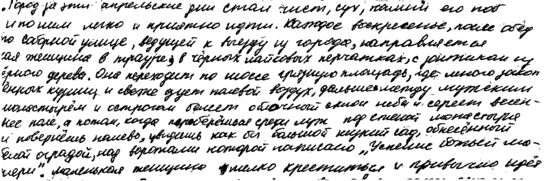 "Город за эти апрельские дни стал чист, сух, камни его поб
и по ним легко и приятно идти. Каждое воскресенье, после обед
по Соборной улице, ведущей к выезду из города, направляется
ая женщина в трауре, в чёрных лайковых перчатках, с зонтиком из
ёрного дерева. Она переходит по шоссе грязную площадь, где много закоп
енных кузниц и свежо дует полевой воздух, дальше между мужским
монастырём и острогом белеет облачный склон неба и сереет весен-
нее поле, а потом, когда проберёшься среди луж под стеной монастыря
и повернёшь налево, увидишь как бы большой низкий сад, обнесённый
белой оградой, над воротами которой написано "Успение Божьей ма-
тери". Маленькая женщина мелко крестится и привычно идёт